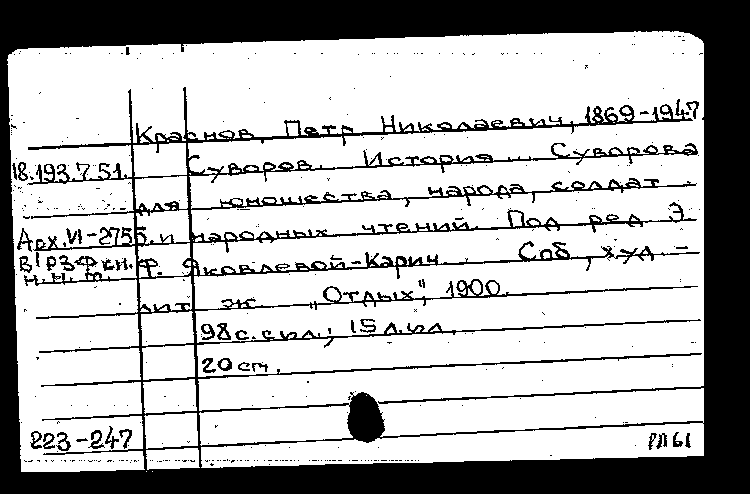 Краснов, Петр Николаевич, 1869-1947.
18.193.7.51. Суворов. История ... Суворова
для юношества, народа, солдат
Арх. И-2755. и народных чтений. Под ред. Э.
Ф. Яковлевой-Карич. Спб, худ.-
лит. ж. „Отдых", 1900.
98 с. с ил.; 15 л. ил.
20 см.
223-247